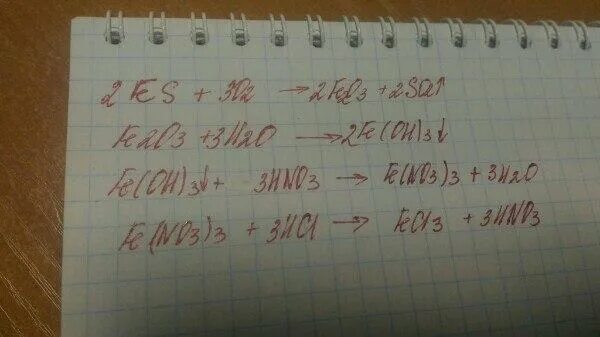 2FeS + 3O2 → 2Fe2O3 + 2SO2↑
Fe2O3 + 3H2O → 2Fe(OH)3↓
Fe(OH)3↓ + 3HNO3 → Fe(NO3)3 + 3H2O
Fe(NO3)3 + 3HCl → FeCl3 + 3HNO3